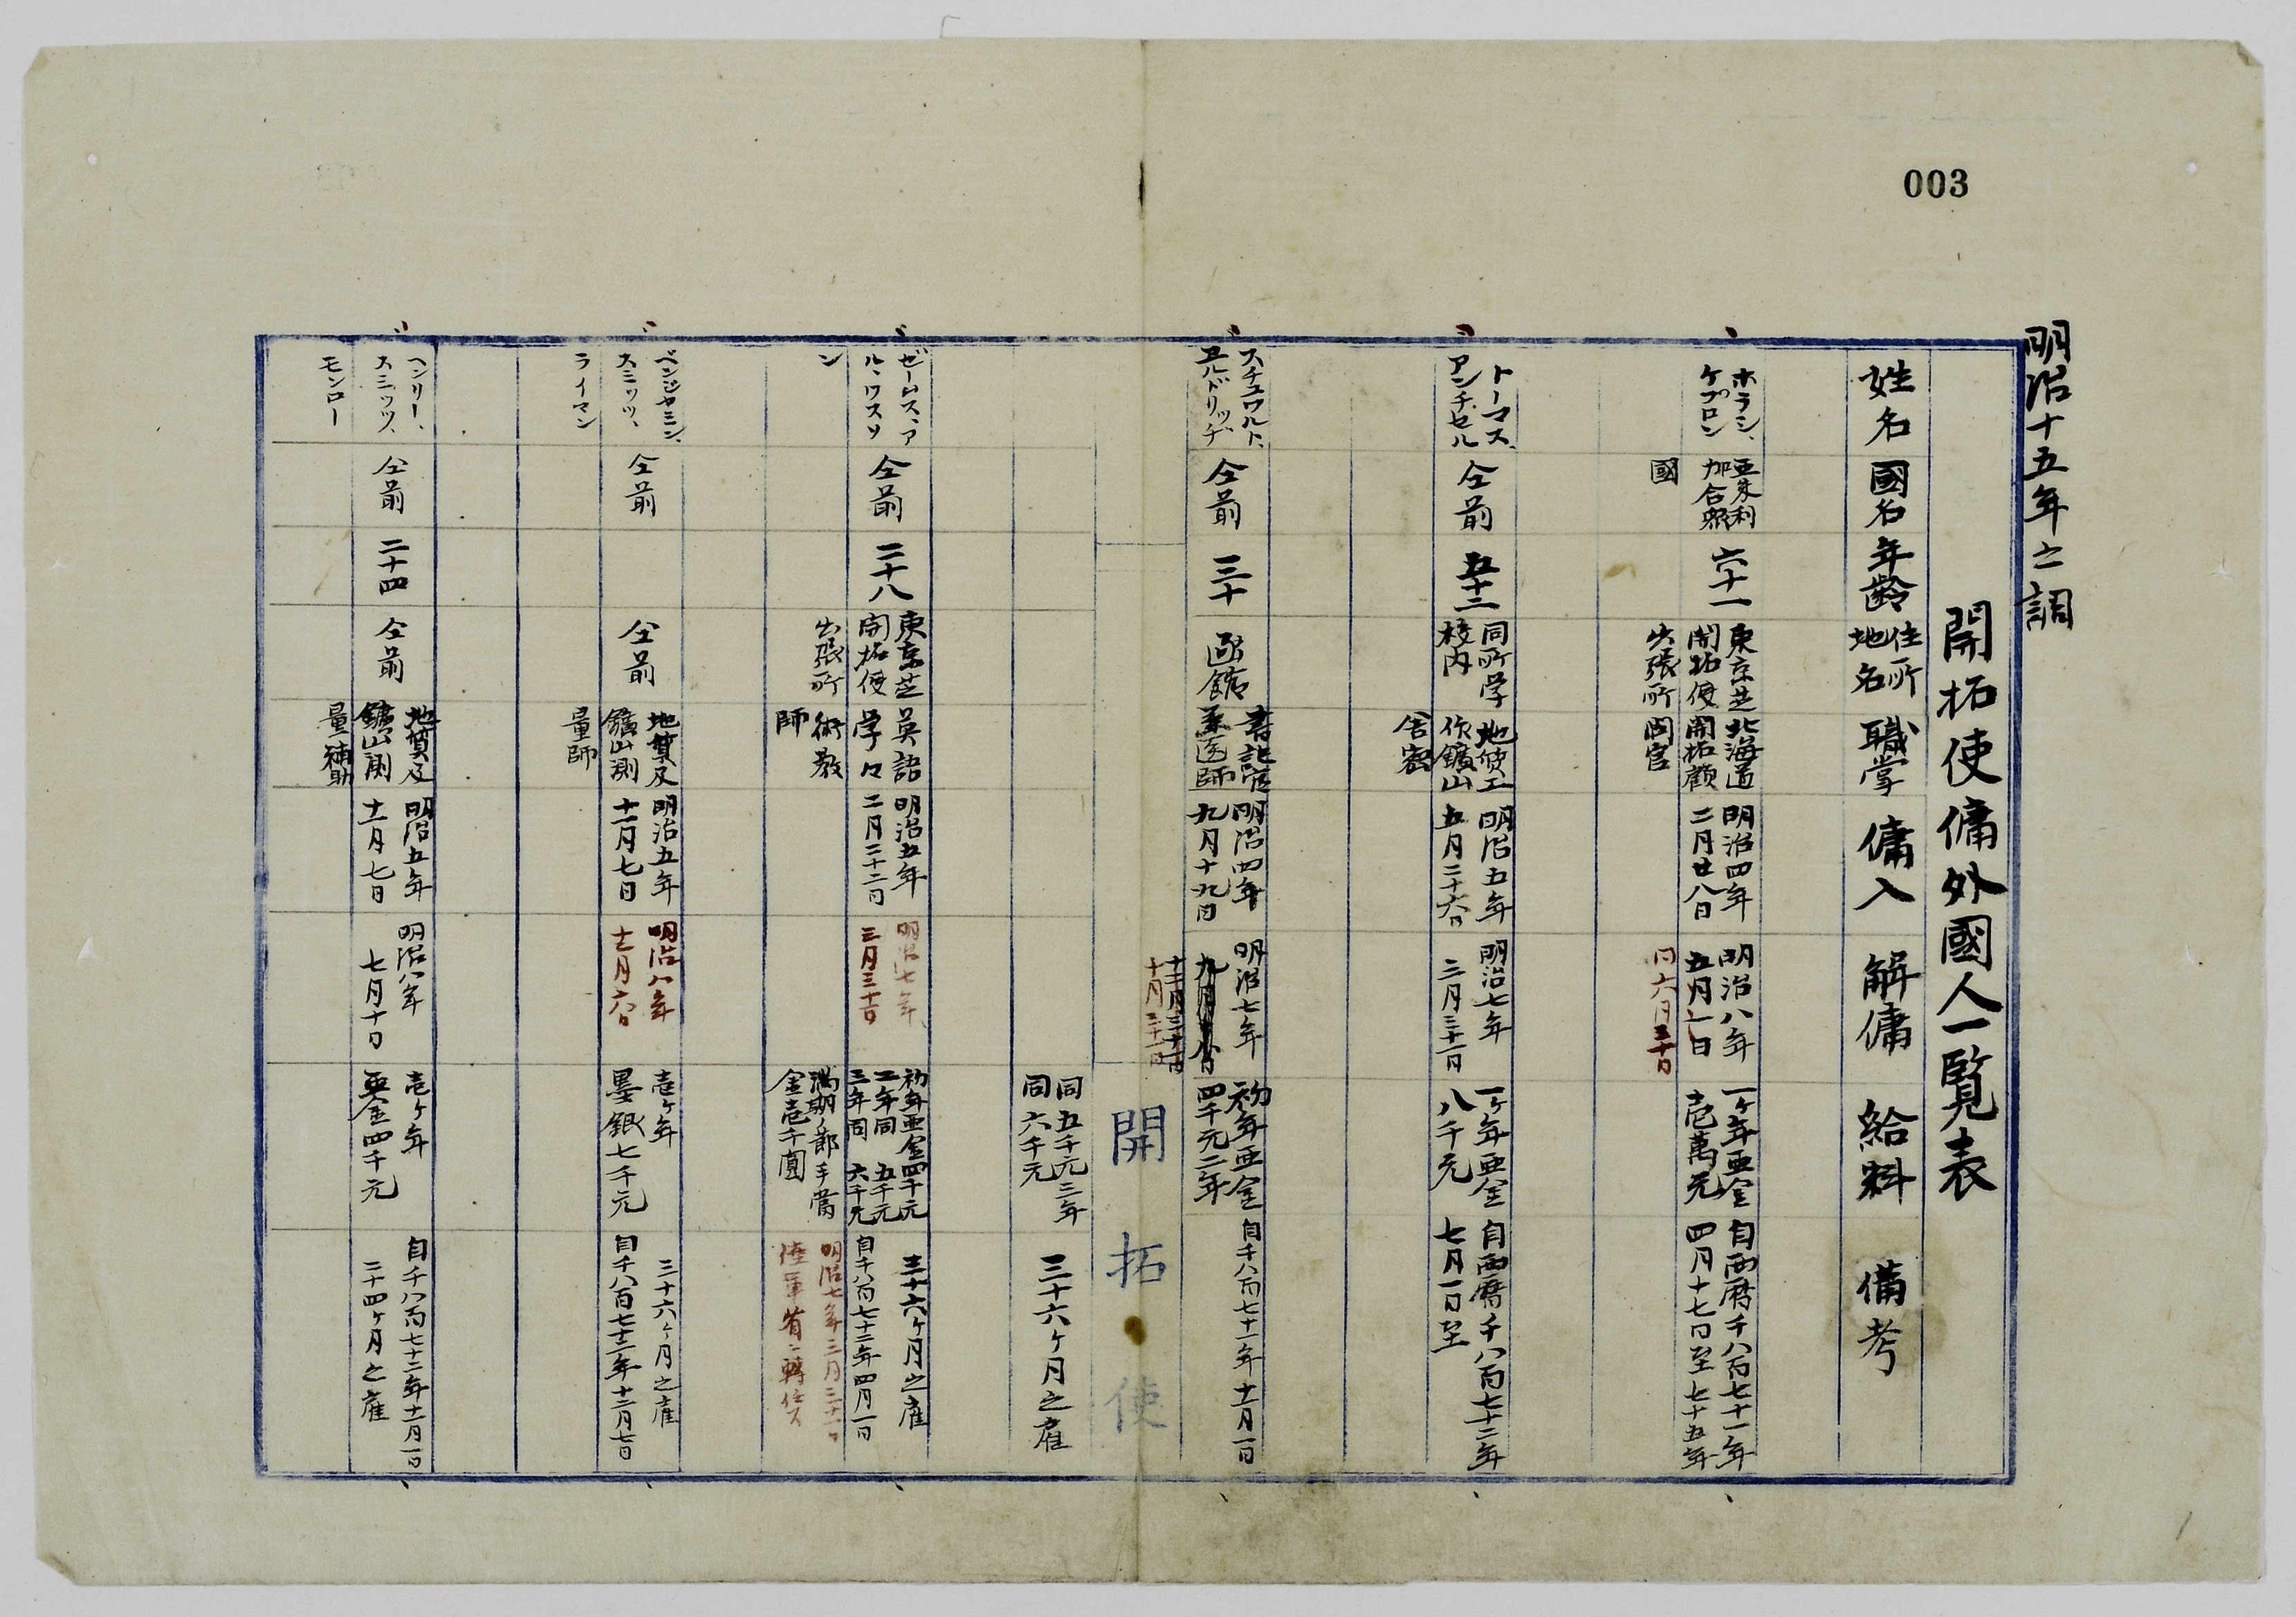 003
明治十五年之調
開拓使傭外國人一覧表
姓名
國名
年齢
住所
地名
職掌
傭入
解傭
給料
備考
ホラシ、
ケプロン
亜米利
加合衆
國
六十一
東京芝
開拓使
出張所
北海道
開拓顧
問官
明治四年
二月廿八日
明治八年
五月一日
同六月三十日
一ヶ年亜金
壱萬元
自西暦千八百七十一年
四月十七日至七十五年
トーマス、
アンチセル
仝前
五十二
同所学
校内
地質工
作鑛山
舎密
明治五年
五月二十六日
明治七年
三月三十一日
一ヶ年亜金
八千元
自西暦千八百七十二年
七月一日至
スチュワルト、
ヱルドリッヂ
仝前
三十
函館
書記官
兼医師
明治四年
九月十九日
明治七年
初年亜金
四千元二年
自千八百七十一年十一月一日
開拓使
同五千元三年
同六千元
三十六ヶ月之雇
ゼームス、ア
ル、ワスソ
ン
仝前
二十八
東京芝
開拓使
出張所
英語
学々
術教
師
明治五年
二月二十二日
明治七年
三月三十一日
初年亜金四千元
二年同 五千元
三年同 六千元
満期ノ節手當
金壱千圓
三十六ヶ月之雇
自千八百七十二年四月一日
明治七年三月三十一日
陸軍省ニ轉任ス
ベンジャミン、
スミッツ、
ライマン
仝前
仝前
地質及
鑛山測
量師
明治五年
十一月七日
明治八年
十一月六日
壱ヶ年
墨銀七千元
三十六ヶ月之雇
自千八百七十二年十二月七日
ヘンリー、
スミッツ、
モンロー
仝前
二十四
仝前
地質及
鑛山測
量補助
明治五年
十一月七日
明治八年
七月十日
壱ヶ年
亜金四千元
自千八百七十二年十一月一日
二十四ヶ月之雇